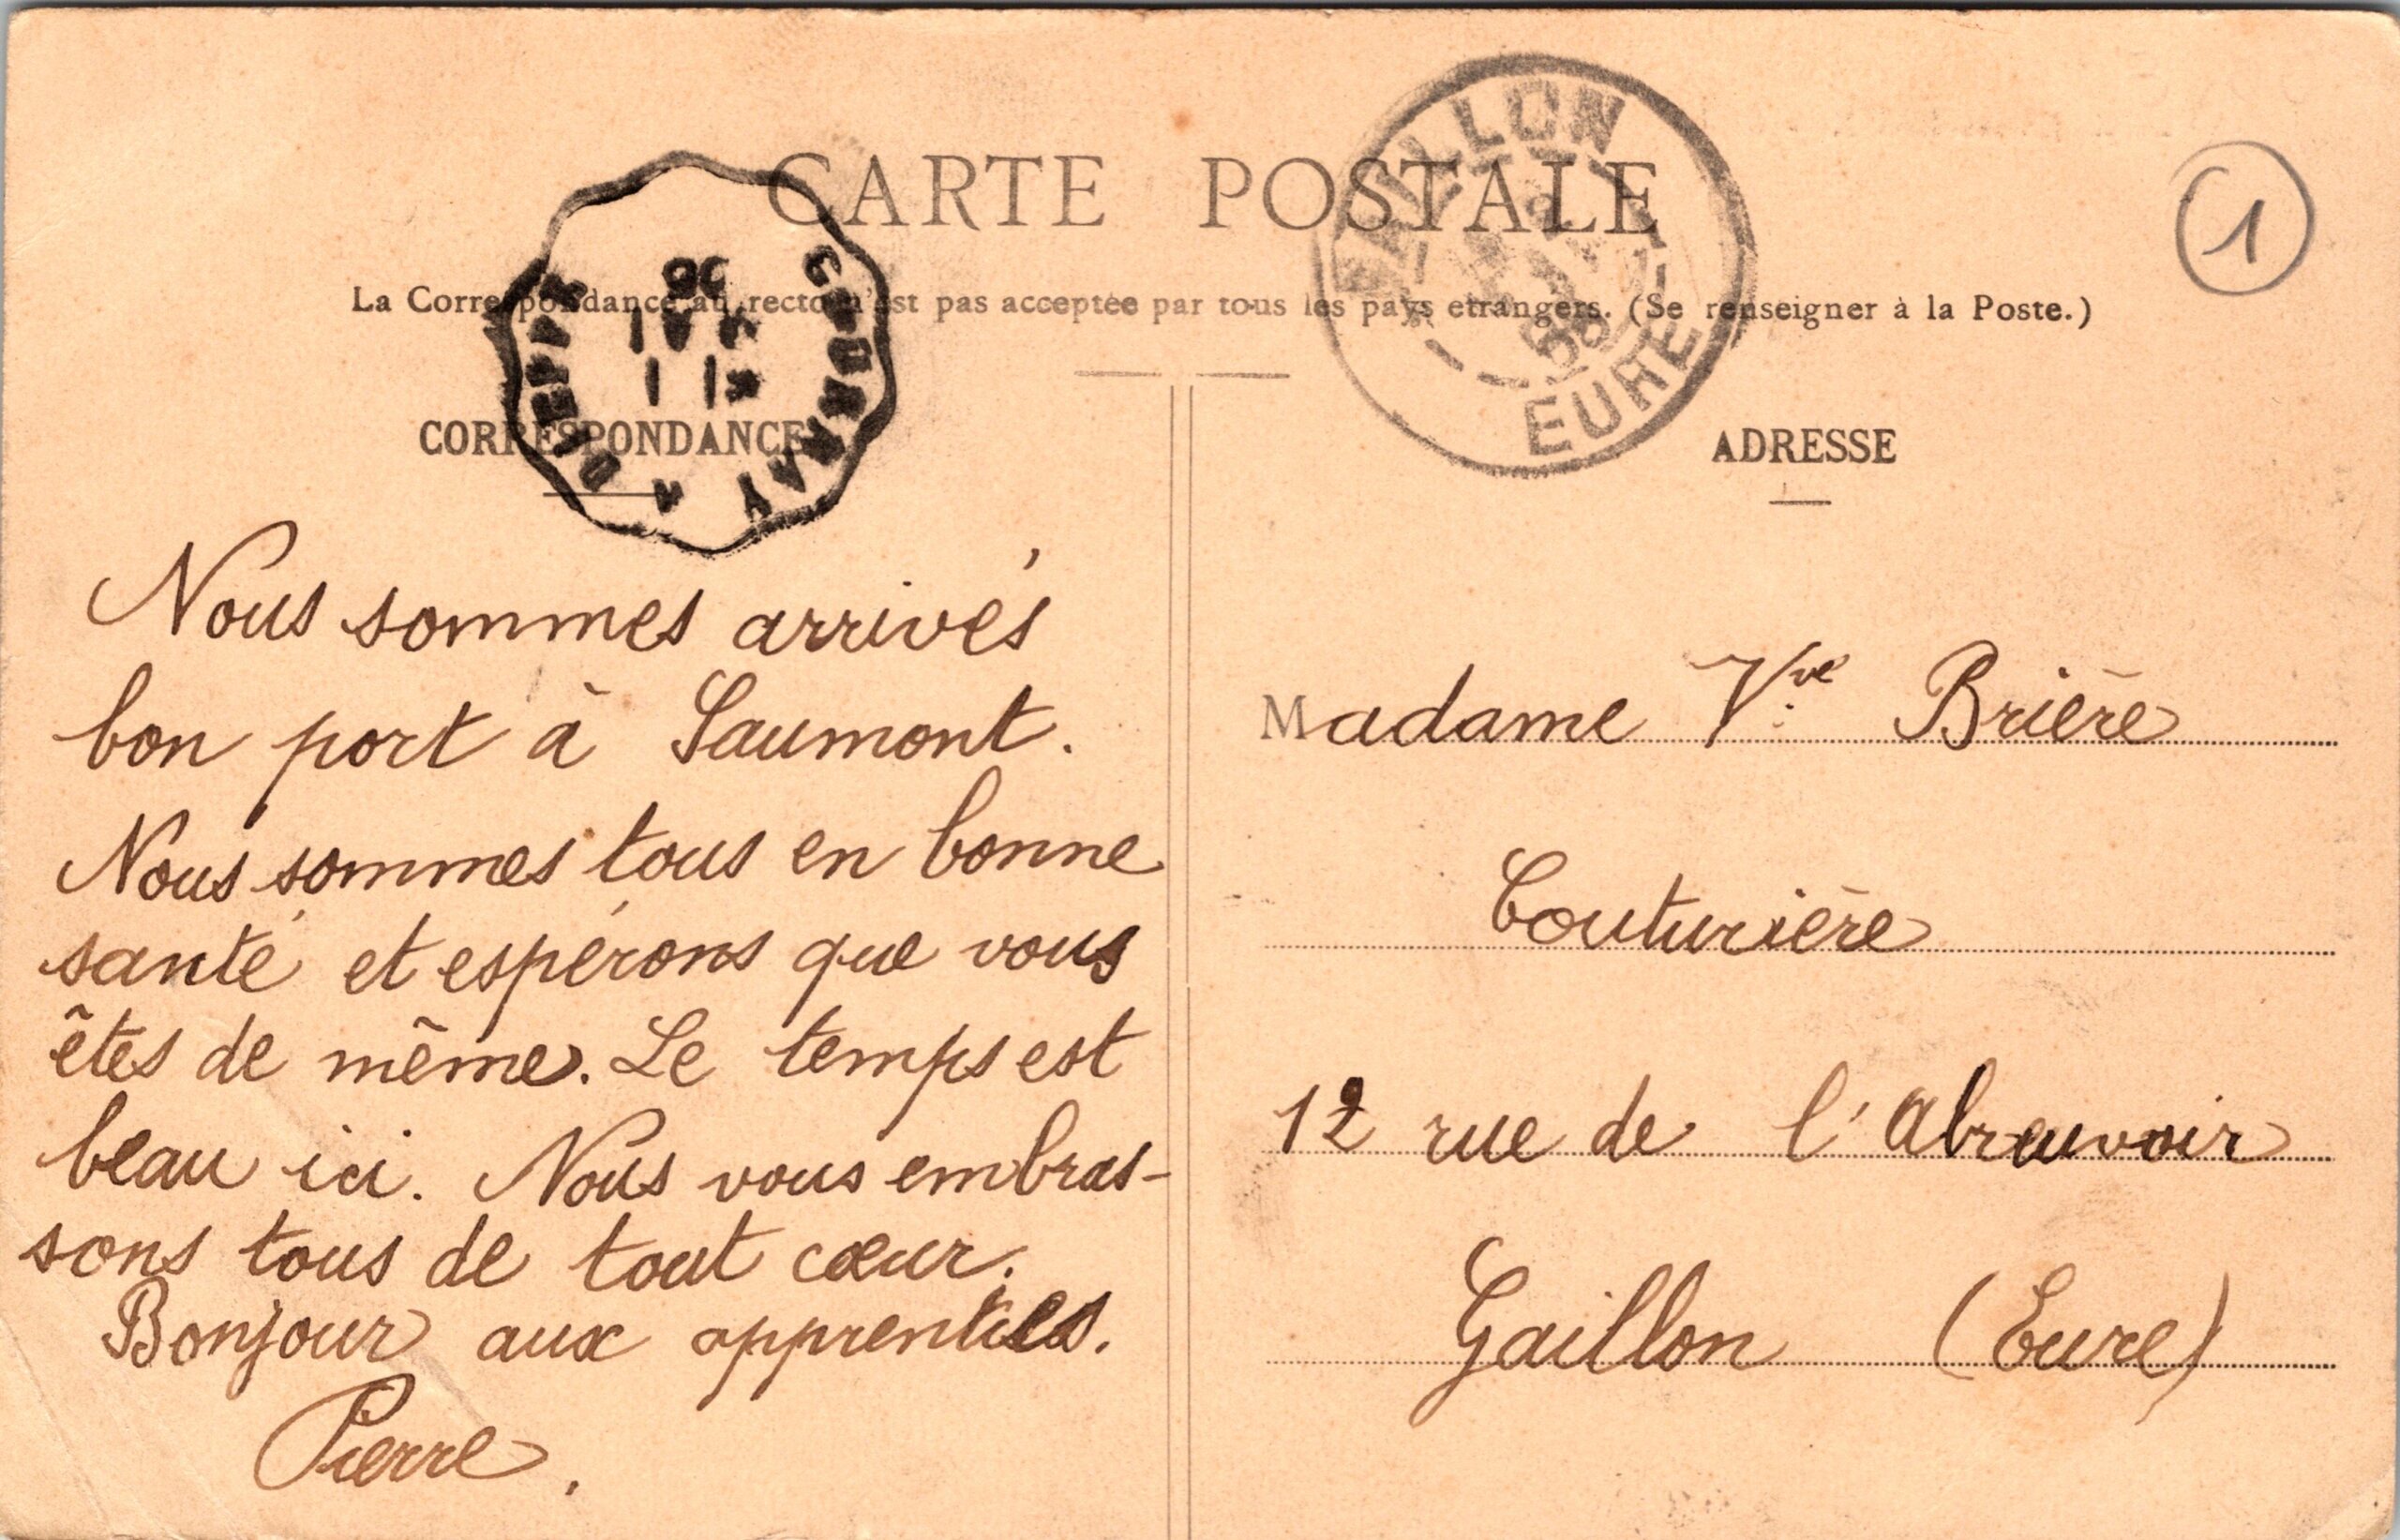 CARTE POSTALE
La Correspondance au recto n'est pas acceptée par tous les pays etrangers. (Se renseigner à la Poste.)
GAILLON
EURE
GOURNAY A DIEPPE
1
CORRESPONDANCE
Nous sommes arrivés
bon port à Saumont.
Nous sommes tous en bonne
santé et espérons que vous
êtes de même. Le temps est
beau ici. Nous vous embras-
sons tous de tout cœur.
Bonjour aux apprenties.
Pierre.
ADRESSE
Madame Vve Brière
Couturière
12 rue de l'Abreuvoir
Gaillon (Eure)